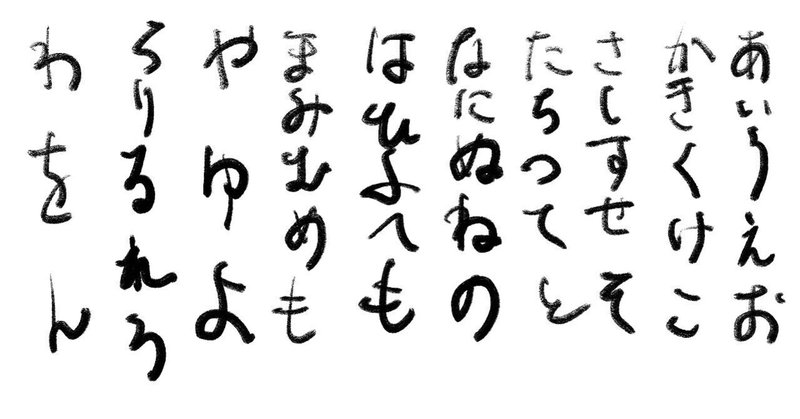 あいうえお
かきくけこ
さしすせそ
たちつてと
なにぬねの
はひふへも
まみむめも
やゆよ
らりるれろ
わをん